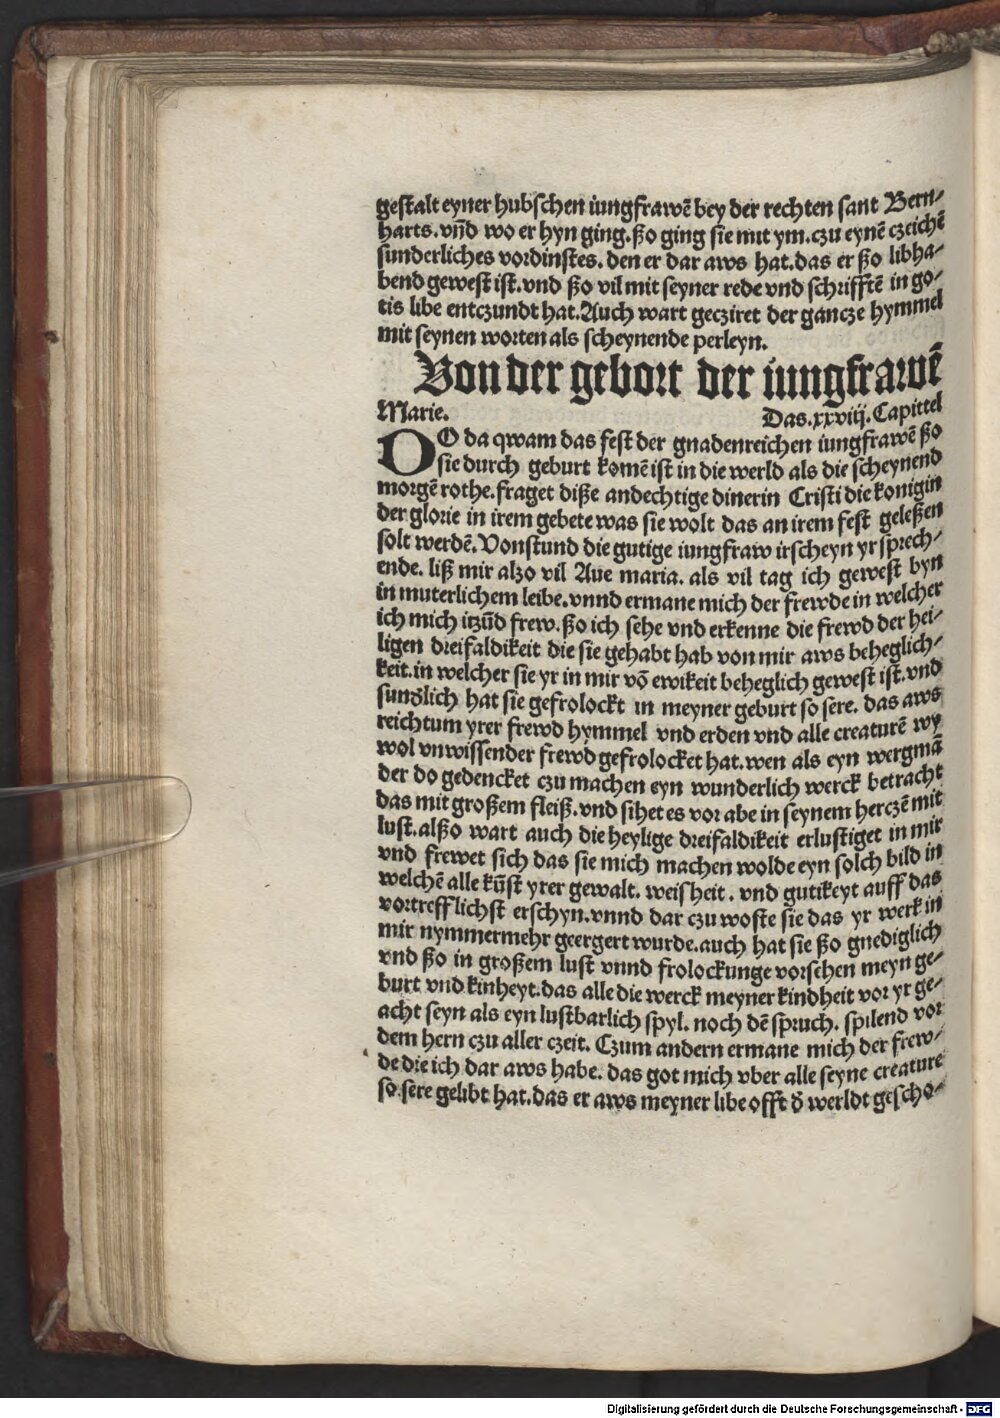 gestalt eyner hubschen iungfrawē bey der rechten sant Bern⸗
harts. vn̄d wo er hyn ging. ßo ging sie mit ym. czu eynē czeichē
sunderliches vordinstes. den er dar aws hat. das er ßo libha⸗
bend gewest ist. vnd ßo vil mit seyner rede vnd schrifftē in go⸗
tis libe entczundt hat. Auch wart gecziret der gancze hymmel
mit seynen worten als scheynende perleyn.
Von der gebort der iungfrawē
Marie. Das. xxviij. Capittel
DO da qwam das fest der gnadenreichen iungfrawē ßo
sie durch geburt komē ist in die werld als die scheynend
morgē rothe. fraget diße andechtige dinerin Cristi die konigin
der glorie in irem gebete was sie wolt das an irem fest geleßen
solt werdē. Vonstund die gutige iungfraw irscheyn yr sprech⸗
ende. liß mir alzo vil Aue maria. als vil tag ich gewest byn
in muterlichem leibe. vnnd ermane mich der frewde in welcher
ich mich itzūd frew. ßo ich sehe vnd erkenne die frewd der hei⸗
ligen dreifaldikeit die sie gehabt hab von mir aws beheglich⸗
keit. in welcher sie yr in mir vō ewikeit beheglich gewest ist. vnd
sunđlich hat sie gefrolockt in meyner geburt so sere. das aws
reichtum yrer frewd hymmel vnd erden vnd alle creaturē wy
wol vnwissender frewd gefrolocket hat. wen als eyn wergmā
der do gedencket czu machen eyn wunderlich werck betracht
das mit großem fleiß. vnd sihet es vor abe in seynem herczē mit
lust. alßo wart auch die heylige dreifaldikeit erlustiget in mir
vnd frewet sich das sie mich machen wolde eyn solch bild in
welchē alle kūst yrer gewalt. weisheit. vnd gutikeyt auff das
vortrefflichst erschyn. vnnd dar czu woste sie das yr werk in
mir nymmermehr geergert wurde. auch hat sie ßo gnediglich
vnd ßo in großem lust vnnd frolockunge vorsehen meyn ge⸗
burt vnd kinheyt. das alle die werck meyner kindheit vor yr ge⸗
acht seyn als eyn lustbarlich spyl. noch dē spruch. spilend vor
dem hern czu aller czeit. Czum andern ermane mich der frew⸗
de die ich dar aws habe. das got mich vber alle seyne creature
so sere gelibt hat. das er aws meyner libe offt đ werldt gescho⸗
Digitalisierung gefördert durch die Deutsche Forschungsgemeinschaft - DFG